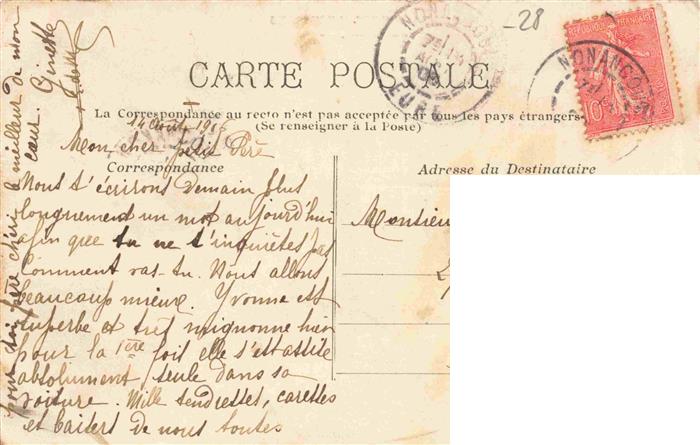 -28
NONANCOURT
EURE
NONANCOURT
REPUBLIQUE FRANÇAISE
10
CARTE POSTALE
La Correspondance au recto n'est pas acceptée par tous les pays étrangers
(Se renseigner à la Poste)
14 Août 1906
Mon cher petit Père
Correspondance
Adresse du Destinataire
Nous t'écrirons demain plus
longuement un mot aujourd'hui
afin que tu ne t'inquiètes pas
Comment vas-tu. Nous allons
beaucoup mieux. Yvonne est
superbe et très mignonne hier
pour la 1ère fois elle s'est assise
absolument seule dans sa
voiture. Mille tendresses, caresses
et baisers de nous toutes
Monsieu
pour toi père chéri le meilleur de mon
cœur. Ginette